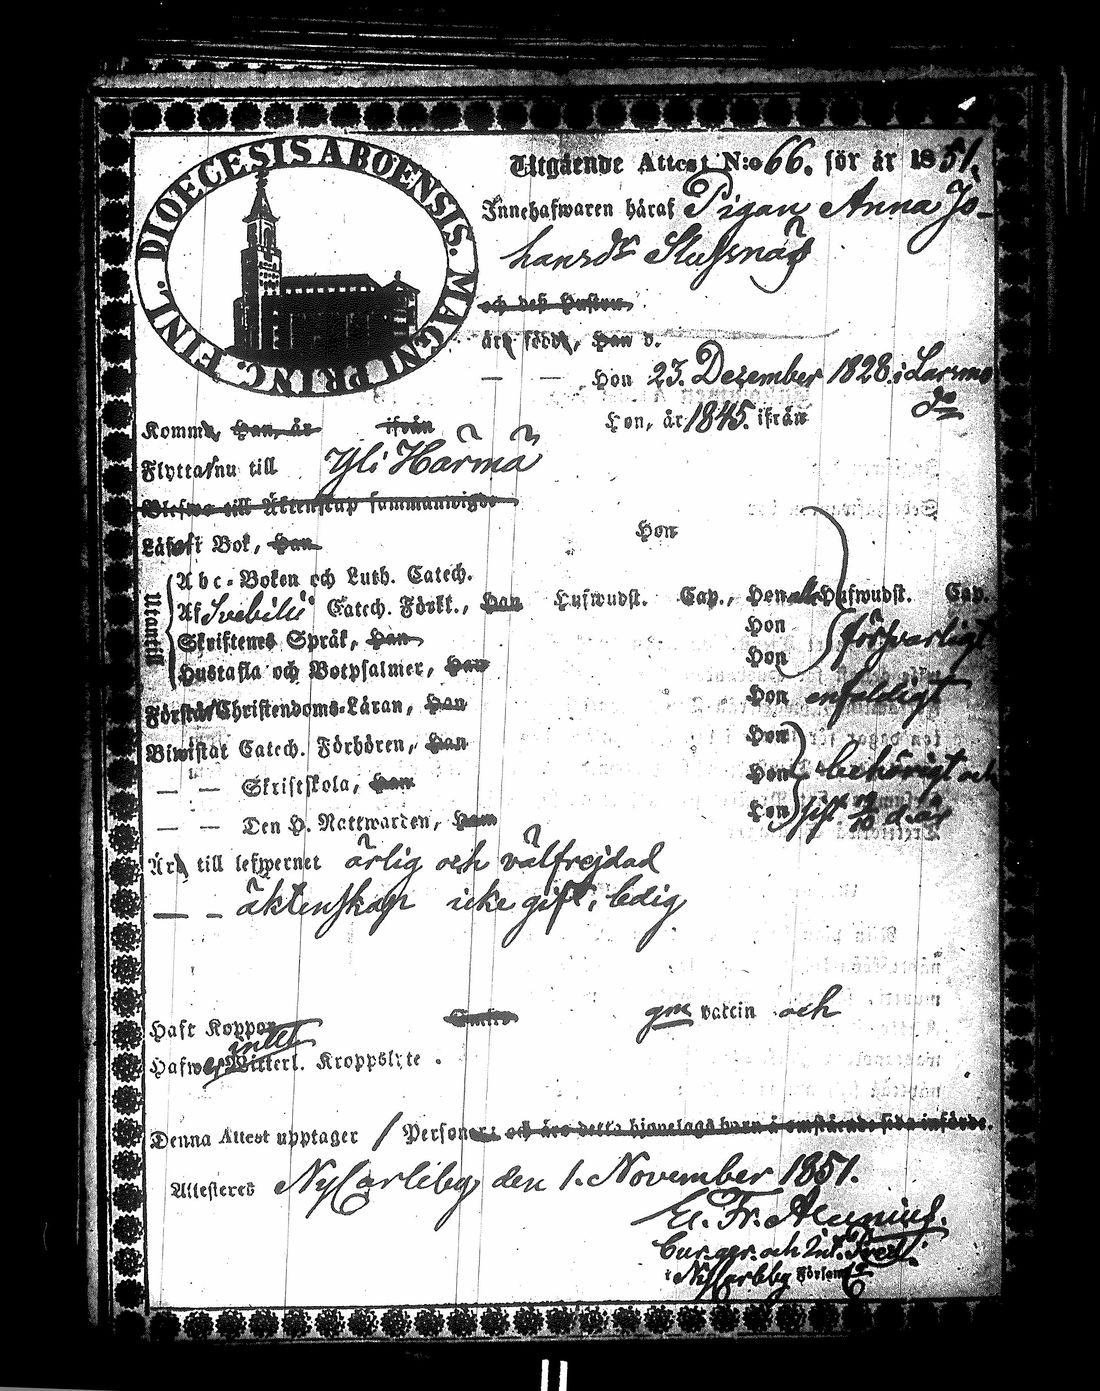 DIOECESIS ABOENSIS. MAGNI PRINC. FINL.
Utgående Attest N:o 66. för år 1851.
Innehafwaren häraf Pigan Anna Jo-
hansdr Slussnäs
och deß Hustru
äro födde, Han d.
— — Hon 23. Dezember 1828. i Larsmo
Komma, Han, år ifrån Hon, år 1845. ifrån do
Flyttas nu till Yli Härmä
Blefwo till Äktenskap sammanwigde
Läsa i Bok, Han Hon
Utantill
Abc-Boken och Luth. Catech.
Af Svebilii Catech. Förkl., Han Hufwudst. Cap., Hon Hufwudst. Cap.
Skriftenes Språk, Han Hon försvarligt
Hustafla och Botpsalmer, Han Hon
Förstår Christendoms-Läran, Han Hon enfaldigt
Biwistat Catech. Förhören, Han Hon
— — Skriftskola, Han Hon behörigt och
— — Den H. Nattwarden, Han Hon sist d. år
Äro till lefwernet ärlig och välfrejdad
— — äktenskap icke gift, ledig
Haft Koppor Genom vaccin och
Hafwer intet Witterl. Kroppslyte.
Denna Attest upptager 1 Personer och äro detta hjonelags barn å omstående sida införde.
Attesteras NyCarleby den 1. November 1851.
El. Fr. Alcenius.
Cur. ger. och Int. Pred.
i NyCarleby Församl.